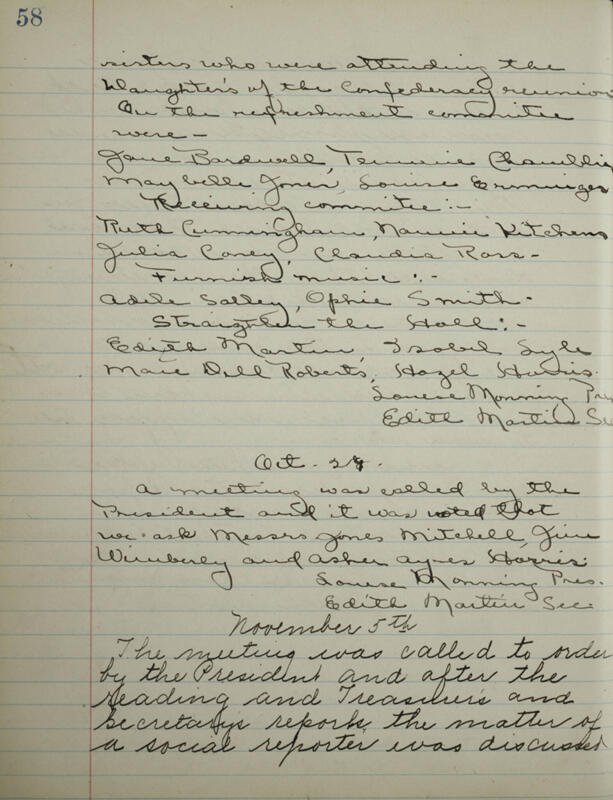 58
sisters who were attending the
Daughter's of the Confederacy reunion
On the refreshment committee
were -
Janie Bardwell, Temmie Chambliss
Maybelle Jones, Louise Erminger
Receiving committee :-
Ruth Cunningham, Nannie Kitchens
Julia Coney, Claudia Ross -
Furnish music :-
Adele Salley, Ophie Smith -
Straighten the Hall :-
Edith Martin, Isobel Lyle
Marie Dell Roberts, Hazel Harris.
Louise Monning Pres
Edith Martin Sec
Oct. 28.
A meeting was called by the
President and it was voted that
we ask Messrs Jones Mitchell, Jim
Wimberly and Asher Ayres Harris.
Louise Monning Pres.
Edith Martin Sec
November 5th
The meeting was called to order
by the President and after the
reading and Treasurers and
Secretarys reports, the matter of
a social reporter was discussed